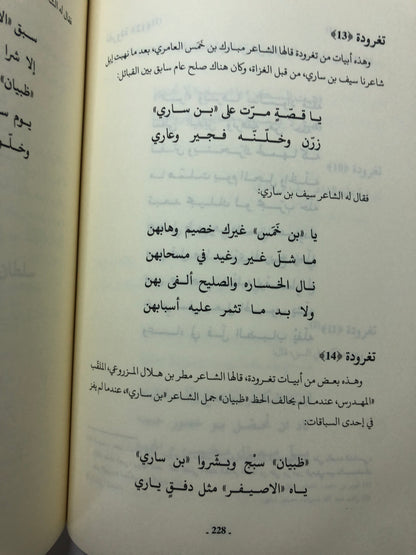 تغرودة ﴿13﴾
وهذه أبيات من تغرودة قالها الشاعر مبارك بن خَمَس العامري، بعد ما نهبت إبل
شاعرنا سيف بن ساري، من قبل الغزاة، وكان هناك صلح عام سابق بين القبائل:
يا قصّةٍ مرّت على «بن ساري»
زرّن وخلّنّه فجير وعاري
فقال له الشاعر سيف بن ساري:
يا «بن خَمَس» غيرك خصيم وهابهن
ما شلّ غير رغيد في مسحابهن
نال الخساره والصليح ألفى بهن
ولا بد ما تثمر عليه أسبابهن
تغرودة ﴿14﴾
وهذه بعض من أبيات تغرودة، قالها الشاعر مطر بن هلال المزروعي، الملقب
«المهدرس، عندما لم يحالف الحظ «ظبيان» جمل الشاعر «بن ساري»، عندما لم يفز
في إحدى السباقات:
«ظبيان» سبّج وبشّروا «بن ساري»
ياه «الاصيفر» مثل دفقٍ ياري
- 228 -
فقال له الش
سبق
إلا شرا
«ظبيان
يوم س
وخلّو